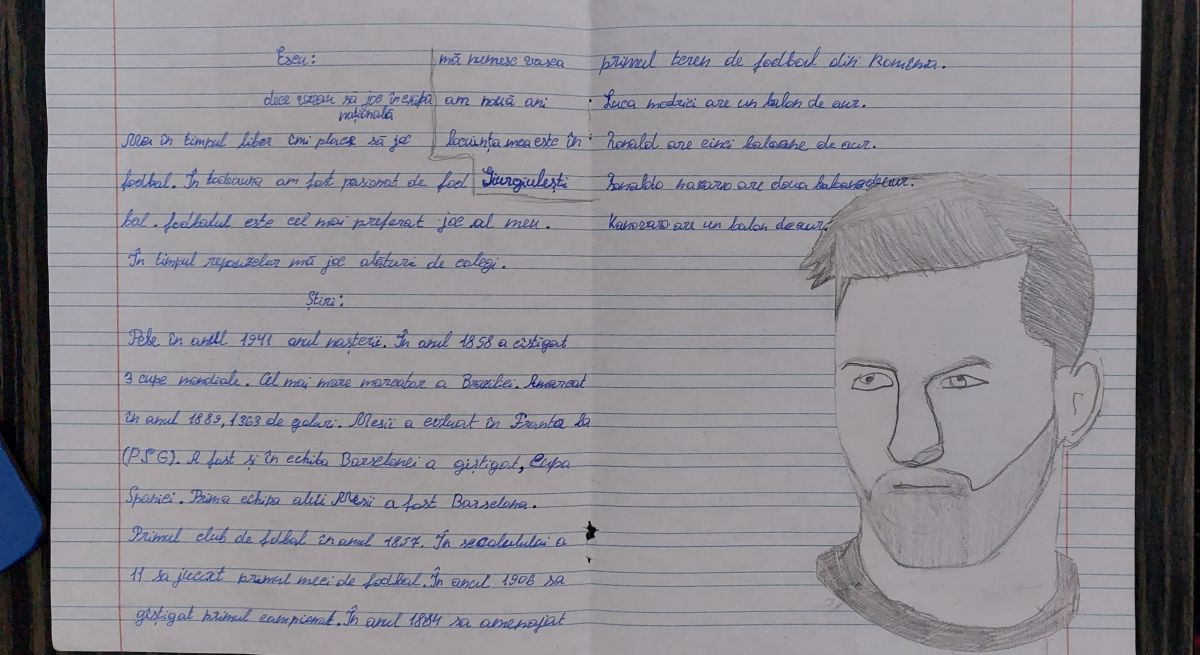 Eseu:
dece vreau să joc în echipa
națională
Mei în timpul liber îmi place să joc
fodbal. În todeauna am fost pasionat de fod
bal. fodbalul este cel mai preferat joc al meu.
În timpul repauzelor mă joc alături de colegi.
mă numesc vasea
am nouă ani
locuința mea este în
Giurgiulești
Știri:
Pele în anul 1941 anul nașterii. În anul 1858 a cîstigat
3 cupe mondiale. Cel mai mare marcator a Braziliei. Amarcat
în anul 1889, 1363 de goluri. Mesii a evluat în Franta la
(PSG). A fost și în echiba Barselonei a giștigat, Cupa
Spaniei. Prima echipa alui Mesii a fost Barselona.
Primul club de fdbal în anul 1857. În secalului a
11 sa jucat primul meci de fodbal. În anul 1906 sa
giștigat primul campionat. În anul 1884 sa amenajat
primul teren de fodbal din România.
Luca modrici are un balon de aur.
Ronald are cinci baloane de aur.
Ronaldo nazario are doua baloane de aur.
Kanavaro are un balon de aur.